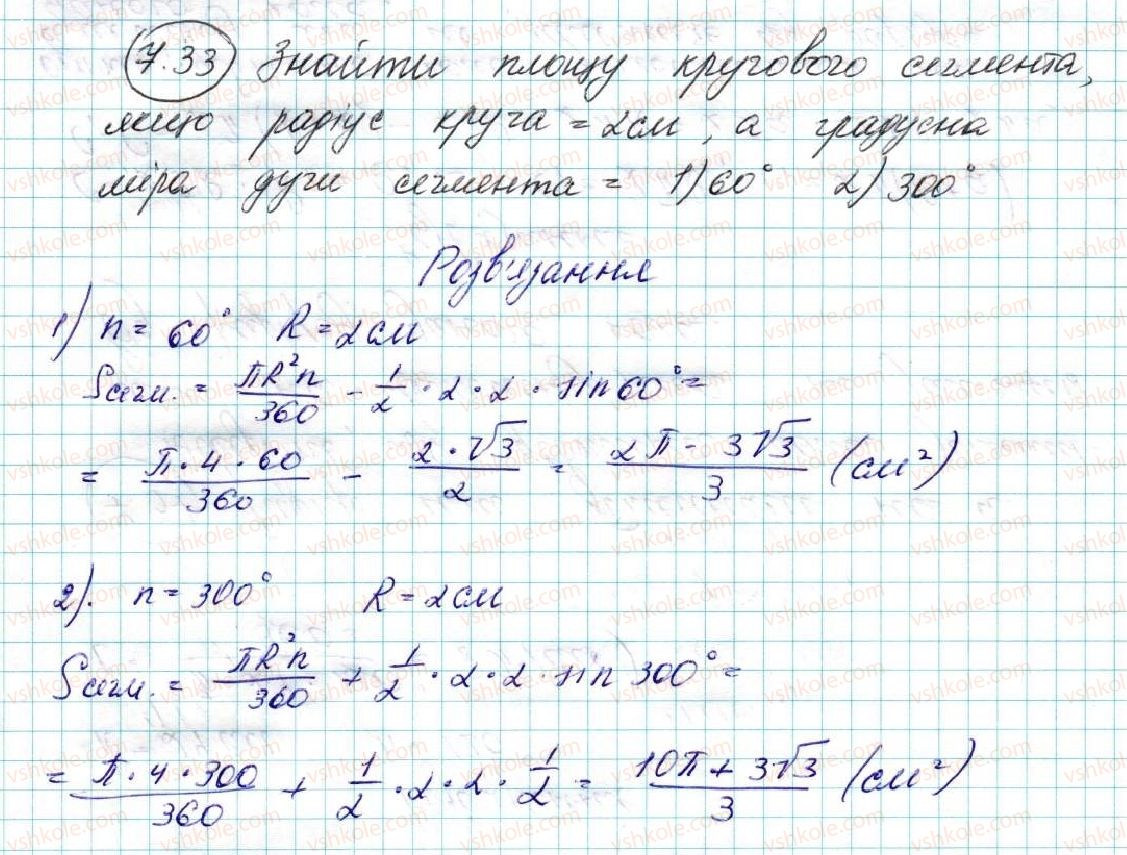 7.33 Знайти площу кругового сегмента,
якщо радіус круга = 2см, а градусна
міра дуги сегмента = 1) 60° 2) 300°
Розв'язання
1) n = 60° R = 2см
Sсегм. = πR²n/360 - 1/2 · 2 · 2 · sin 60° =
= π·4·60/360 - 2·√3/2 = 2π - 3√3/3 (см²)
2). n = 300° R = 2см
Sсегм. = πR²n/360 + 1/2 · 2 · 2 · sin 300° =
= π·4·300/360 + 1/2 · 2 · 2 · 1/2 = 10π + 3√3/3 (см²)